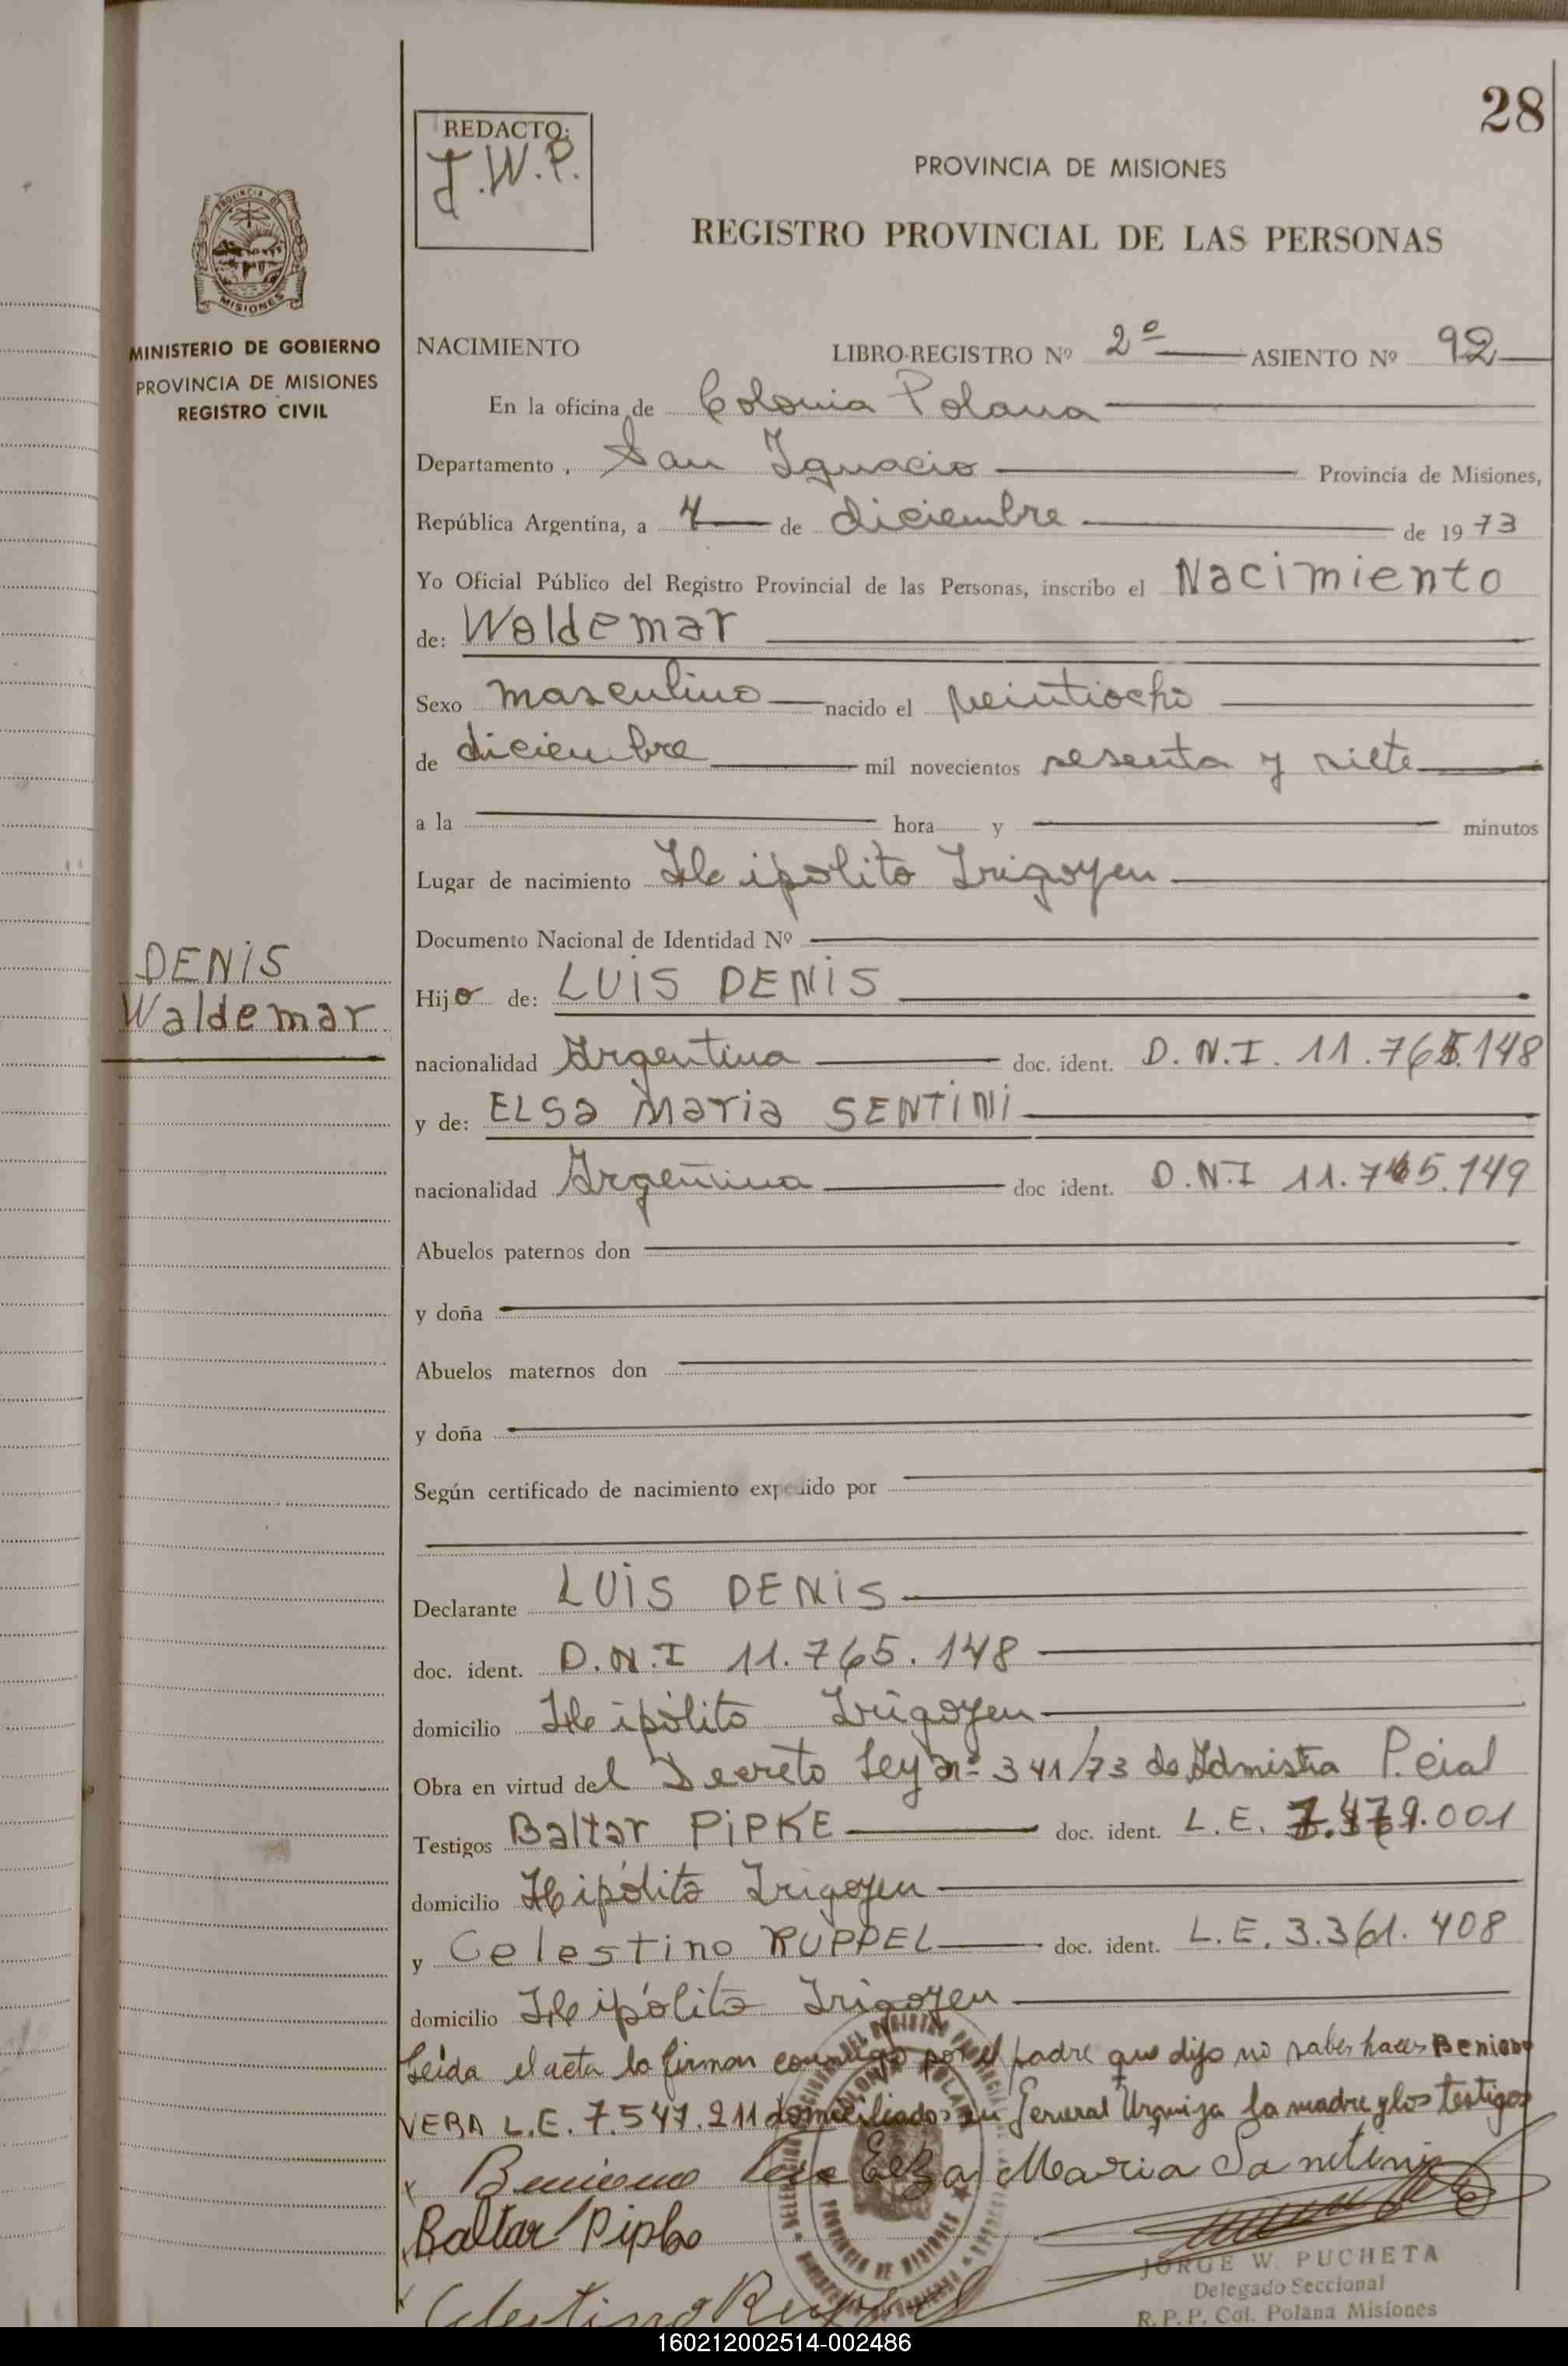 28
REDACTO:
J.W.P.
PROVINCIA DE MISIONES
REGISTRO PROVINCIAL DE LAS PERSONAS
PROVINCIA DE
MISIONES
MINISTERIO DE GOBIERNO
PROVINCIA DE MISIONES
REGISTRO CIVIL
NACIMIENTO LIBRO-REGISTRO Nº 2º ASIENTO Nº 92
En la oficina de Colonia Polana
Departamento San Ignacio Provincia de Misiones,
República Argentina, a 4 de diciembre de 1973
Yo Oficial Público del Registro Provincial de las Personas, inscribo el Nacimiento
de: Waldemar
Sexo masculino nacido el veintiocho
de diciembre mil novecientos sesenta y siete
a la hora y minutos
Lugar de nacimiento Hipolito Irigoyen
Documento Nacional de Identidad Nº
DENIS
Waldemar
Hijo de: LUIS DENIS
nacionalidad Argentina doc. ident. D.N.I. 11.765.148
y de: ELSa Maria SENTINI
nacionalidad Argentina doc ident. D.N.I 11.765.149
Abuelos paternos don
y doña
Abuelos maternos don
y doña
Según certificado de nacimiento expedido por
Declarante LUIS DENIS
doc. ident. D.N.I 11.765.148
domicilio Hipólito Irigoyen
Obra en virtud del Decreto Ley nº 341/73 de P.cial
Testigos Baltar PIPKE doc. ident. L.E. .001
domicilio Hipólito Irigoyen
y Celestino RUPPEL doc. ident. L.E. 3.361.408
domicilio Hipólito Irigoyen
Leida el acta la firman conmigo por el padre que dijo no saber hacer Benigno
VERA L.E. 7.547.211 domiciliados en General Urquiza la madre y los testigos
Elsa Maria Santini
Baltar Pipke
Celestino Ruppel
JORGE W. PUCHETA
Delegado Seccional
R.P.P. Col. Polana Misiones
160212002514-002486